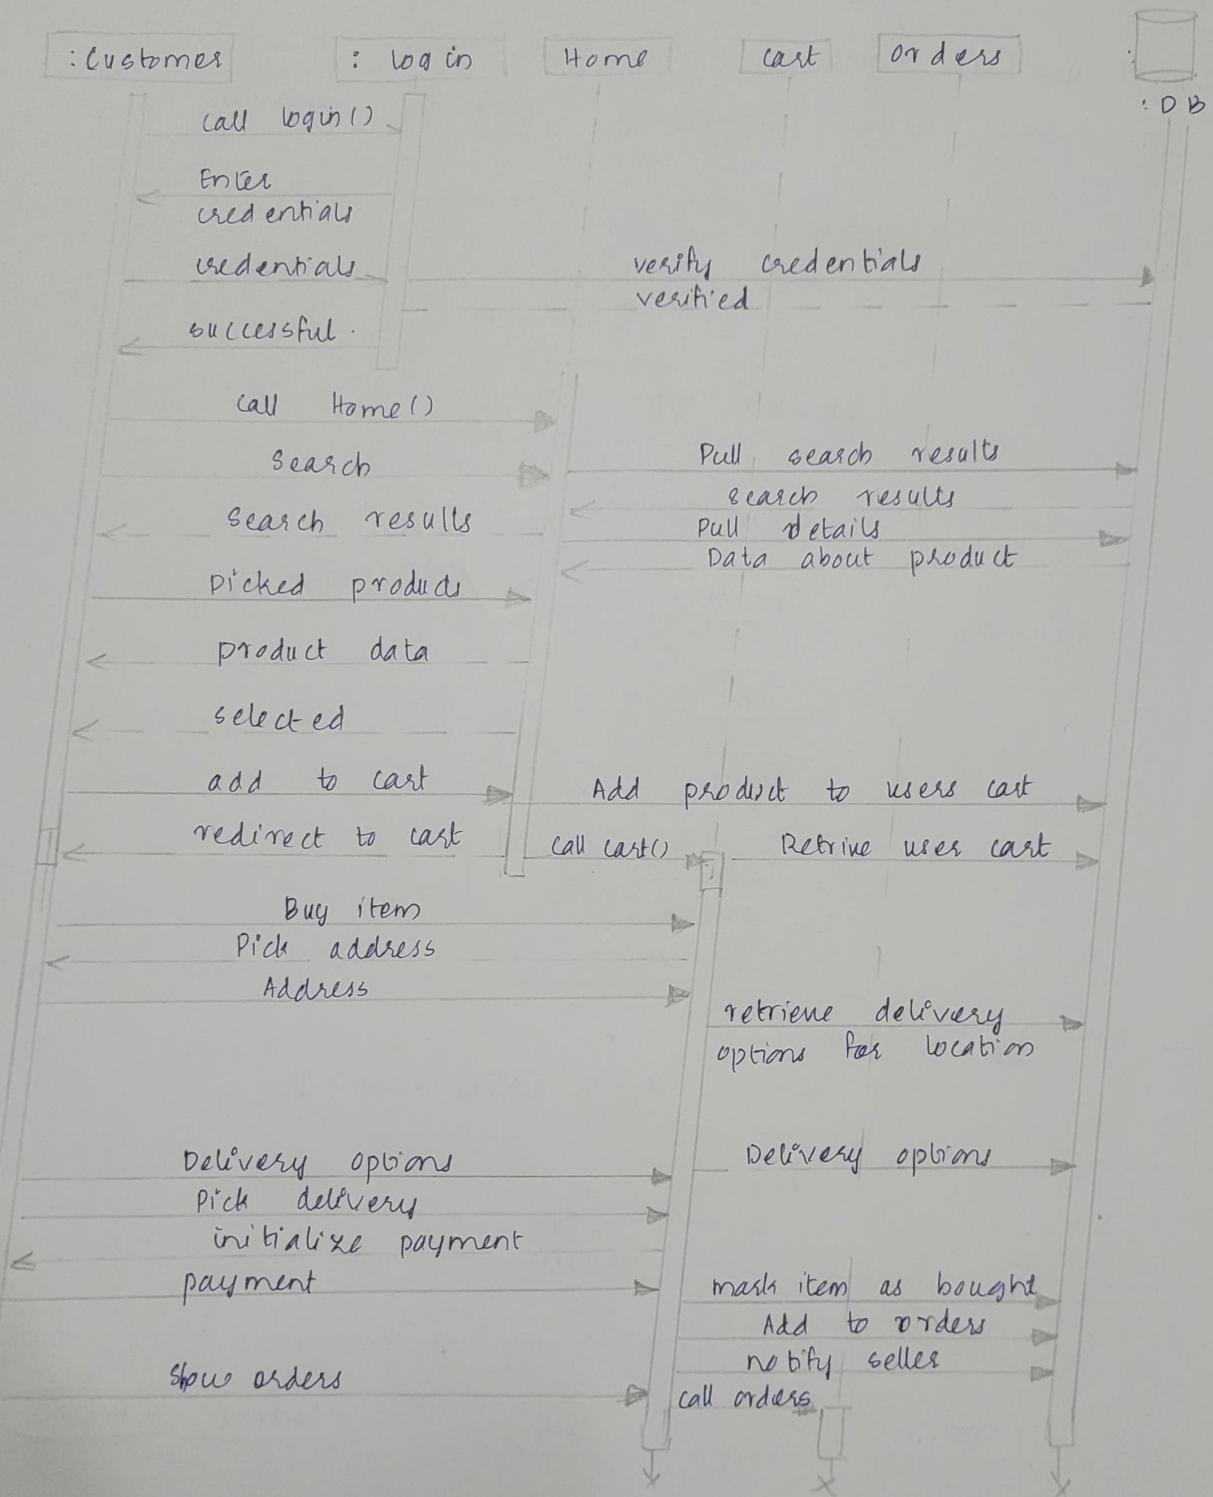 :Customer
: login
Home
cart
orders
:
: DB
call login()
Enter
credentials
credentials
verify credentials
verified
successful.
call Home()
Search
Pull search results
search results
Search results
Pull details
Data about product
Picked products
product data
selected
add to cart
Add product to users cart
redirect to cart
call cart()
Retrive user cart
Buy item
Pick address
Address
retrieve delivery
options for location
Delivery options
Delivery options
Pick delivery
initialize payment
payment
mark item as bought
Add to orders
notify seller
Show orders
call orders